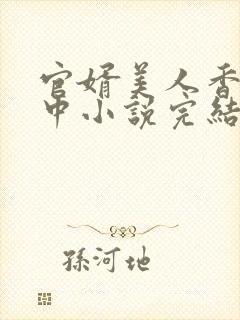 官婿美人香
中小說完結
孫河地